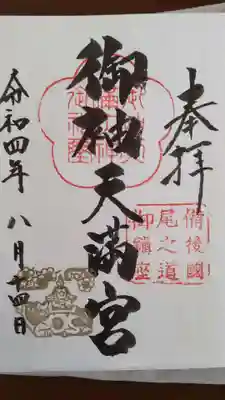 奉拝
備後國
尾之道
御鎮座
御袖天満宮
令和四年八月十四日